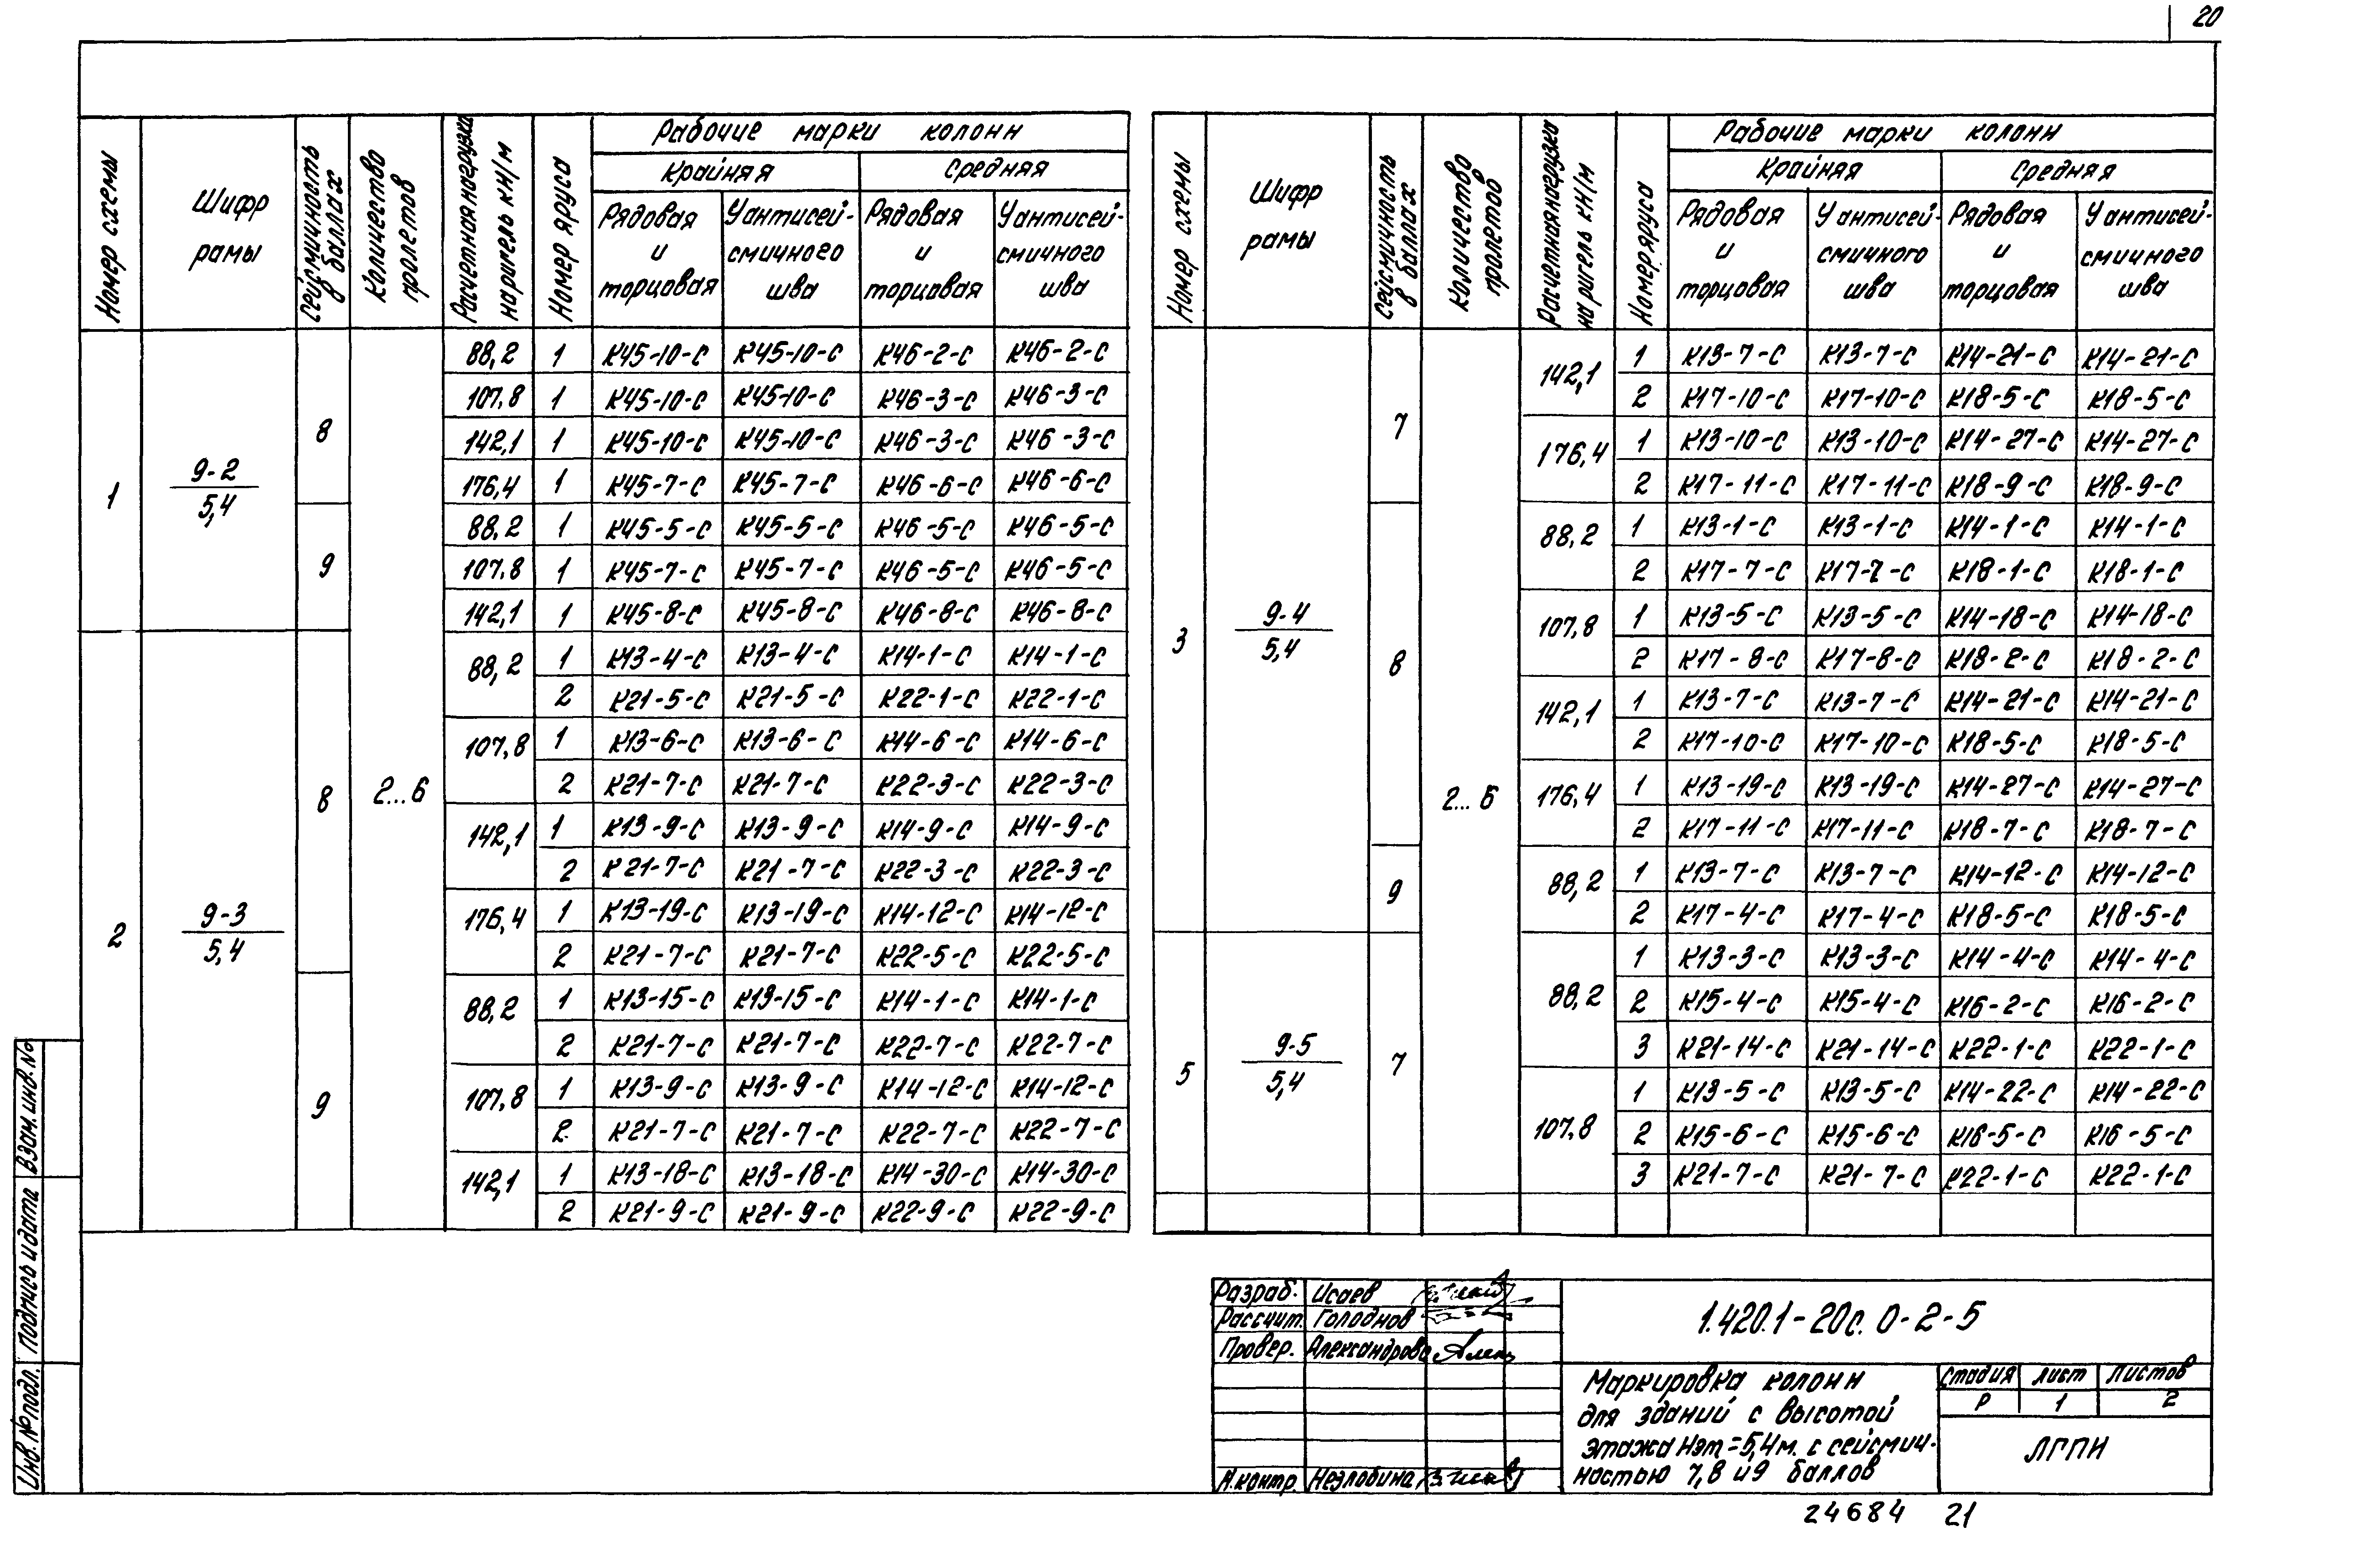 20
Номер схемы
Шифр рамы
Сейсмичность в баллах
Количество пролетов
Расчетная нагрузка на ригель кН/м
Номер яруса
Рабочие марки колонн
Крайняя Средняя
Рядовая и торцовая
У антисей-смичного шва
Рядовая и торцовая
У антисей-смичного шва
1 9-2/5,4 8 2...6 88,2 1 К45-10-С К45-10-С К46-2-С К46-2-С
107,8 1 К45-10-С К45-10-С К46-3-С К46-3-С
142,1 1 К45-10-С К45-10-С К46-3-С К46-3-С
176,4 1 К45-7-С К45-7-С К46-6-С К46-6-С
9 88,2 1 К45-5-С К45-5-С К46-5-С К46-5-С
107,8 1 К45-7-С К45-7-С К46-5-С К46-5-С
142,1 1 К45-8-С К45-8-С К46-8-С К46-8-С
2 9-3/5,4 8 88,2 1 К13-4-С К13-4-С К14-1-С К14-1-С
2 К21-5-С К21-5-С К22-1-С К22-1-С
107,8 1 К13-6-С К13-6-С К14-6-С К14-6-С
2 К21-7-С К21-7-С К22-3-С К22-3-С
142,1 1 К13-9-С К13-9-С К14-9-С К14-9-С
2 К21-7-С К21-7-С К22-3-С К22-3-С
176,4 1 К13-19-С К13-19-С К14-12-С К14-12-С
2 К21-7-С К21-7-С К22-5-С К22-5-С
9 88,2 1 К13-15-С К13-15-С К14-1-С К14-1-С
2 К21-7-С К21-7-С К22-7-С К22-7-С
107,8 1 К13-9-С К13-9-С К14-12-С К14-12-С
2 К21-7-С К21-7-С К22-7-С К22-7-С
142,1 1 К13-18-С К13-18-С К14-30-С К14-30-С
2 К21-9-С К21-9-С К22-9-С К22-9-С
Номер схемы
Шифр рамы
Сейсмичность в баллах
Количество пролетов
Расчетная нагрузка на ригель кН/м
Номер яруса
Рабочие марки колонн
Крайняя Средняя
Рядовая и торцовая
У антисей-смичного шва
Рядовая и торцовая
У антисей-смичного шва
3 9-4/5,4 7 2...6 142,1 1 К13-7-С К13-7-С К14-21-С К14-21-С
2 К17-10-С К17-10-С К18-5-С К18-5-С
176,4 1 К13-10-С К13-10-С К14-27-С К14-27-С
2 К17-11-С К17-11-С К18-9-С К18-9-С
8 88,2 1 К13-1-С К13-1-С К14-1-С К14-1-С
2 К17-7-С К17-7-С К18-1-С К18-1-С
107,8 1 К13-5-С К13-5-С К14-18-С К14-18-С
2 К17-8-С К17-8-С К18-2-С К18-2-С
142,1 1 К13-7-С К13-7-С К14-21-С К14-21-С
2 К17-10-С К17-10-С К18-5-С К18-5-С
176,4 1 К13-19-С К13-19-С К14-27-С К14-27-С
2 К17-11-С К17-11-С К18-7-С К18-7-С
9 88,2 1 К13-7-С К13-7-С К14-12-С К14-12-С
2 К17-4-С К17-4-С К18-5-С К18-5-С
5 9-5/5,4 7 88,2 1 К13-3-С К13-3-С К14-4-С К14-4-С
2 К15-4-С К15-4-С К16-2-С К16-2-С
3 К21-14-С К21-14-С К22-1-С К22-1-С
107,8 1 К13-5-С К13-5-С К14-22-С К14-22-С
2 К15-6-С К15-6-С К16-5-С К16-5-С
3 К21-7-С К21-7-С К22-1-С К22-1-С
Инв. № подл. Подпись и дата Взам. инв. №
Разраб. Исаев
Рассчит. Голоднов
Провер. Александрова
Н.контр Незлобина
1.420.1-20с. 0-2-5
Маркировка колонн
для зданий с высотой
этажа Нэт=5,4м. с сейсмич-
ностью 7, 8 и 9 баллов
Стадия Лист Листов
Р 1 2
ЛГПИ
24684 21